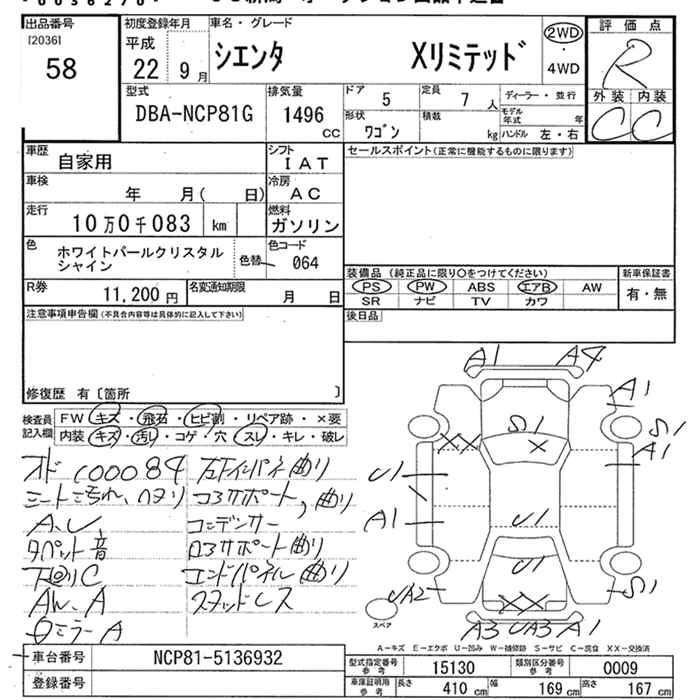 出品番号
[2036]
58
初度登録年月
平成
22 9月
車名・グレード
シエンタ Xリミテッド
2WD
・
4WD
評価点
R
外装 内装
C C
型式
DBA-NCP81G
排気量
1496
CC
ドア 5
定員 7 人
ディーラー・並行
形状
ワゴン
積載 kg
モデル年式 年
ハンドル 左・右
車歴
自家用
シフト
IAT
セールスポイント(正常に機能するものに限ります)
車検
年 月( 日)
冷房
AC
走行
10万0千083 km
燃料
ガソリン
色
ホワイトパールクリスタル
シャイン
色替
色コード
064
装備品(純正品に限り○をつけてください)
PS PW ABS エアB AW
SR ナビ TV カワ
新車保証書
有・無
R券
11,200 円
名変通知期限
月 日
後日品
注意事項申告欄(不具合内容等は具体的に記入して下さい)
修復歴 有〔箇所 〕
検査員
記入欄
FW キズ・飛石・ヒビ割・リペア跡・×要
内装 キズ・汚れ・コゲ・穴・スレ・キレ・破レ
左インパネ曲り
シート汚れ、
コアサポート, 曲り
A、
コンデンサー
タペット音
ロアサポート曲り
下廻りC
エンドパネル曲り
AW A
スタッドレス
ミラーA
A1 A4
A1
S1
S1
A1
XX
X
U1
A1
U1
U1
UA2
S1
XX
A3 UA3 A1
スペア
A－キズ E－エクボ U－凹み W－補修跡 S－サビ C－腐食 XX－交換済
車台番号
NCP81-5136932
登録番号
型式指定番号
参考
15130
類別区分番号
参考
0009
車庫証明用
参考
長さ 410 cm
幅 169 cm
高さ 167 cm